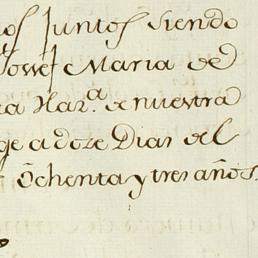 Juntos siendo
Josef Maria de
Nar.ª de nuestra
a doze Dias del
Ochenta y tres años.